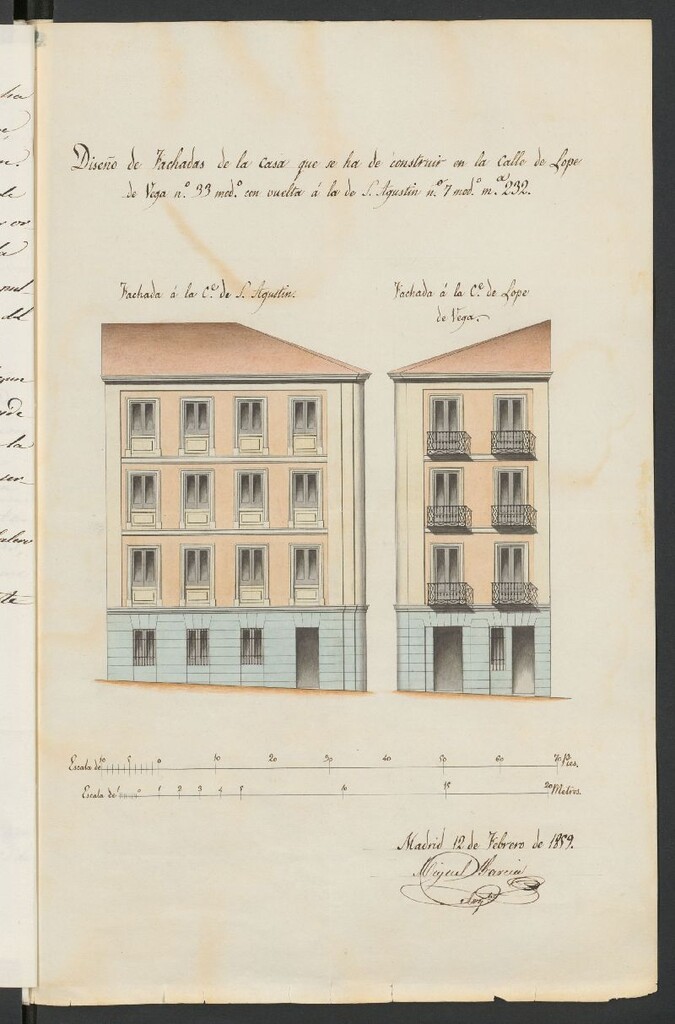 Diseño de Fachadas de la casa que se ha de construir en la calle de Lope
de Vega n.º 33 mod.º con vuelta á la de S. Agustin n.º 7 mod.º m.ª 232.
Fachada á la C.e de S. Agustin.
Fachada á la C.e de Lope
de Vega.
Escala de 10 5 0 10 20 30 40 50 60 70 Pies.
Escala de 0 1 2 3 4 5 10 15 20 Metros.
Madrid 12 de Febrero de 1859.
Miguel Garcia
la
de
la